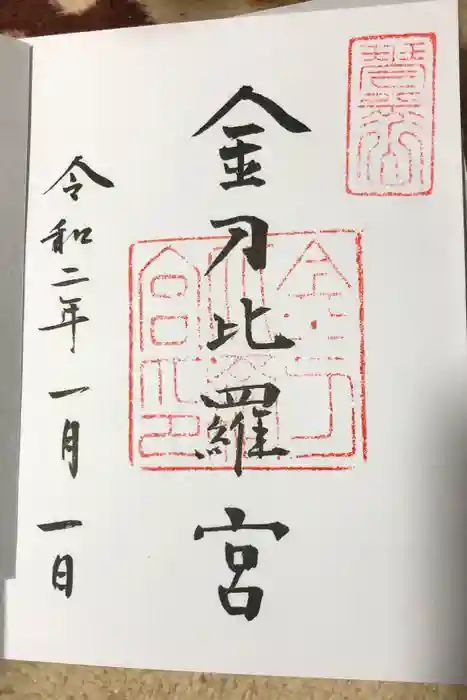 金刀比羅宮
金刀
比羅
宮之印
令和二年一月一日